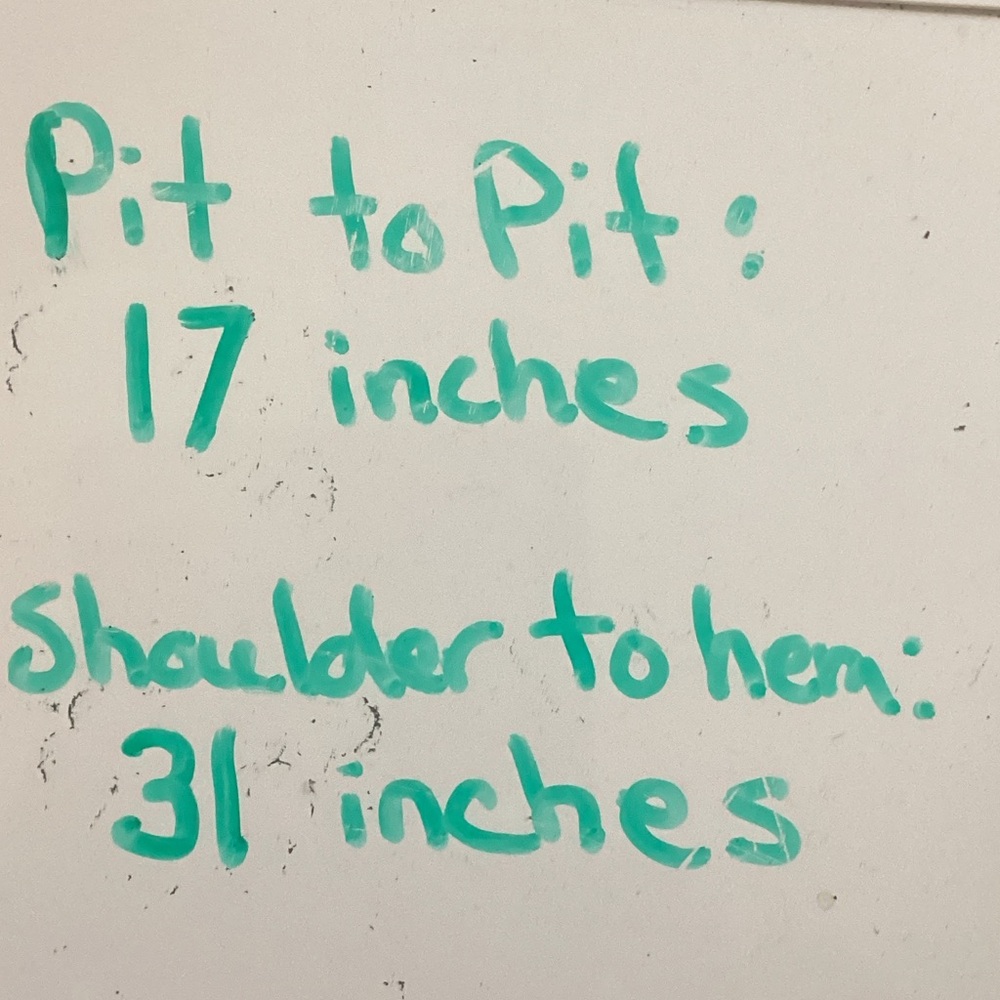 Pit to Pit:
17 inches
Shoulder to hem:
31 inches